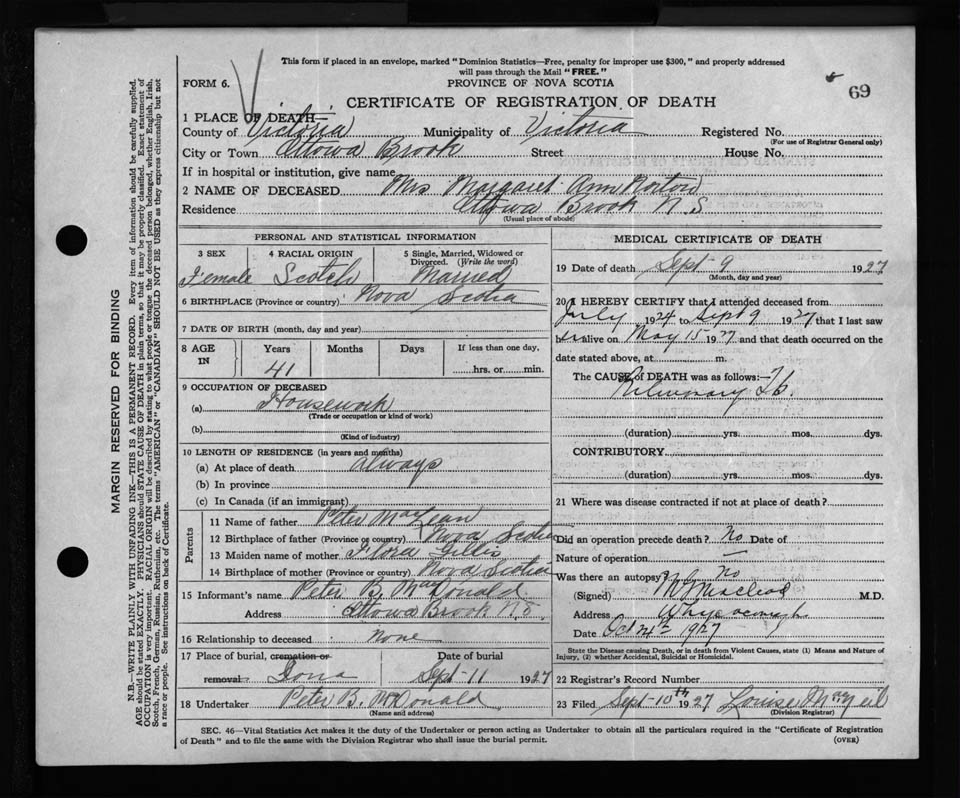 This form if placed in an envelope, marked "Dominion Statistics—Free, penalty for improper use $300," and properly addressed
will pass through the Mail "FREE."
FORM 6.
PROVINCE OF NOVA SCOTIA
69
CERTIFICATE OF REGISTRATION OF DEATH
1 PLACE OF DEATH—
County of Victoria Municipality of Victoria Registered No.
(For use of Registrar General only)
City or Town Ottowa Brook Street House No.
If in hospital or institution, give name
2 NAME OF DECEASED Mrs Margaret Ann Norton
Residence Ottowa Brook N.S
(Usual place of abode)
PERSONAL AND STATISTICAL INFORMATION
3 SEX 4 RACIAL ORIGIN 5 Single, Married, Widowed or Divorced. (Write the word)
Female Scotch Married
6 BIRTHPLACE (Province or country) Nova Scotia
7 DATE OF BIRTH (month, day and year)
8 AGE IN Years Months Days If less than one day,
41 hrs. or min.
9 OCCUPATION OF DECEASED
(a) Housework
(Trade or occupation or kind of work)
(b)
(Kind of industry)
10 LENGTH OF RESIDENCE (in years and months)
(a) At place of death always
(b) In province
(c) In Canada (if an immigrant)
Parents
11 Name of father Peter MacLean
12 Birthplace of father (Province or country) Nova Scotia
13 Maiden name of mother Flora Gillis
14 Birthplace of mother (Province or country) Nova Scotia
15 Informant's name Peter B. MacDonald
Address Ottowa Brook N.S.
16 Relationship to deceased none
17 Place of burial, cremation or Date of burial
removal Iona Sept-11 1927
18 Undertaker Peter B. McDonald
(Name and address)
MEDICAL CERTIFICATE OF DEATH
19 Date of death Sept-9 1927
(Month, day and year)
20 I HEREBY CERTIFY that I attended deceased from
July 1924 to Sept 9 1927 that I last saw
her alive on May 15 1927 and that death occurred on the
date stated above, at m.
The CAUSE of DEATH was as follows:
Pulmonary Tb.
(duration) yrs. mos. dys.
CONTRIBUTORY
(duration) yrs. mos. dys.
21 Where was disease contracted if not at place of death?
Did an operation precede death? No Date of
Nature of operation —
Was there an autopsy? No
(Signed) Macleod M.D.
Address Whycocomagh
Date Oct 24th 1927
State the Disease causing Death, or in death from Violent Causes, state (1) Means and Nature of
Injury, (2) whether Accidental, Suicidal or Homicidal.
22 Registrar's Record Number
23 Filed Sept-10th 1927 Louise McNeil
(Division Registrar)
SEC. 46—Vital Statistics Act makes it the duty of the Undertaker or person acting as Undertaker to obtain all the particulars required in the "Certificate of Registration
of Death" and to file the same with the Division Registrar who shall issue the burial permit.
(OVER)
MARGIN RESERVED FOR BINDING
N.B.—WRITE PLAINLY WITH UNFADING INK—THIS IS A PERMANENT RECORD. Every item of information should be carefully supplied.
AGE should be stated EXACTLY. PHYSICIANS should STATE CAUSE OF DEATH in plain terms, so that it may be properly classified. Exact statement of
OCCUPATION is very important. RACIAL ORIGIN will be described by stating to what people or tongue the deceased person belonged, whether English, Irish,
Scotch, French, German, Russian, Ruthenian, etc. The terms "AMERICAN" or "CANADIAN" SHOULD NOT BE USED as they express citizenship but not
a race or people. See instructions on back of Certificate.